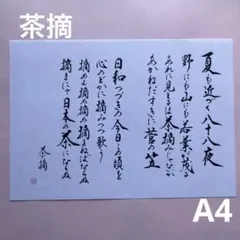 茶摘
夏も近づく八十八夜
野にも山にも若葉が茂る
あれに見えるは茶摘みじゃないか
あかねだすきに菅の笠
日和つづきの今日この頃を
心のどかに摘みつつ歌う
摘めよ摘め摘め摘まねばならぬ
摘まにゃ日本の茶にならぬ
茶摘
A4